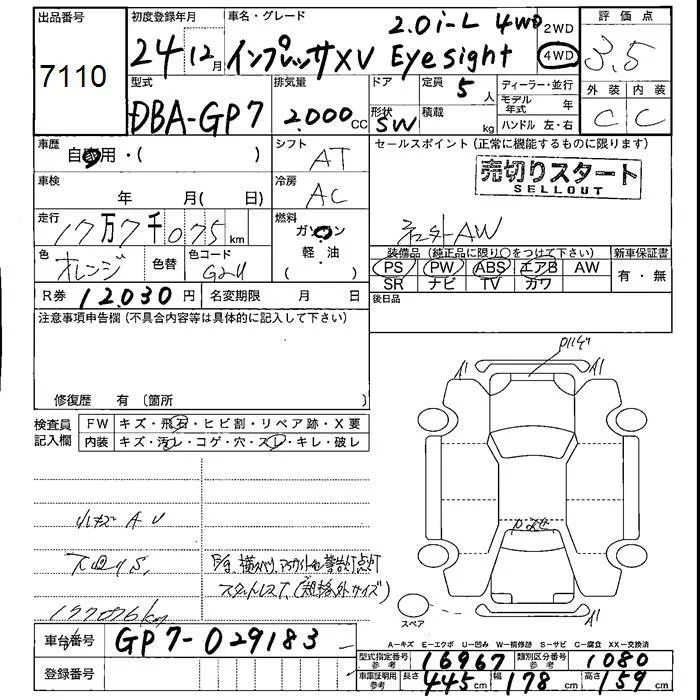 出品番号
7110
初度登録年月
24 12月
車名・グレード
2.0i-L 4WD
インプレッサXV Eyesight
2WD
4WD
評価点
3.5
外装 内装
C C
型式
DBA-GP7
排気量
2.000cc
ドア
形状
SW
定員
5人
積載
kg
ディーラー・並行
モデル年式 年
ハンドル 左・右
車歴
自家用・( )
シフト
AT
セールスポイント(正常に機能するものに限ります)
売切りスタート
SELLOUT
車検
年 月( 日)
冷房
AC
走行
17万7千075km
燃料
ガソリン
軽・油
( )
社外AW
色
オレンジ
色替
色コード
G2U
装備品(純正品に限り○をつけて下さい)
PS PW ABS エアB AW
SR ナビ TV カワ
新車保証書
有・無
R券 12,030円
名変期限 月 日
後日品
注意事項申告欄(不具合内容等は具体的に記入して下さい)
修復歴 有(箇所 )
検査員記入欄
FW キズ・飛石・ヒビ割・リペア跡・X要
内装 キズ・汚レ・コゲ・穴・スレ・キレ・破レ
小キズ A U
下回りS,
177076km
スタッドレスT,(規格外サイズ)
A1
A1
A1
スペア
A-キズ E-エクボ U-凹み W-補修跡 S-サビ C-腐食 XX-交換済
車台番号
GP7-029183
登録番号
型式指定番号 参考 16967
類別区分番号 参考 1080
車庫証明用 参考 長さ 445cm 幅 178cm 高さ 159cm